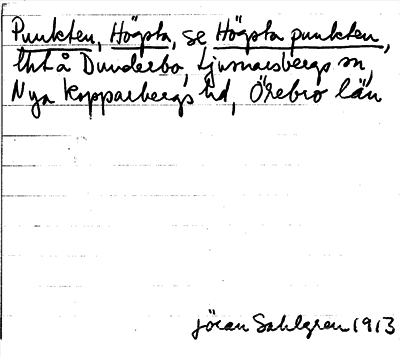 Punkten, Högsta, se Högsta punkten,
tht å Dunderbo, Ljusnarsbergs sn,
Nya Kopparbergs hd, Örebro län
Jöran Sahlgren 1913